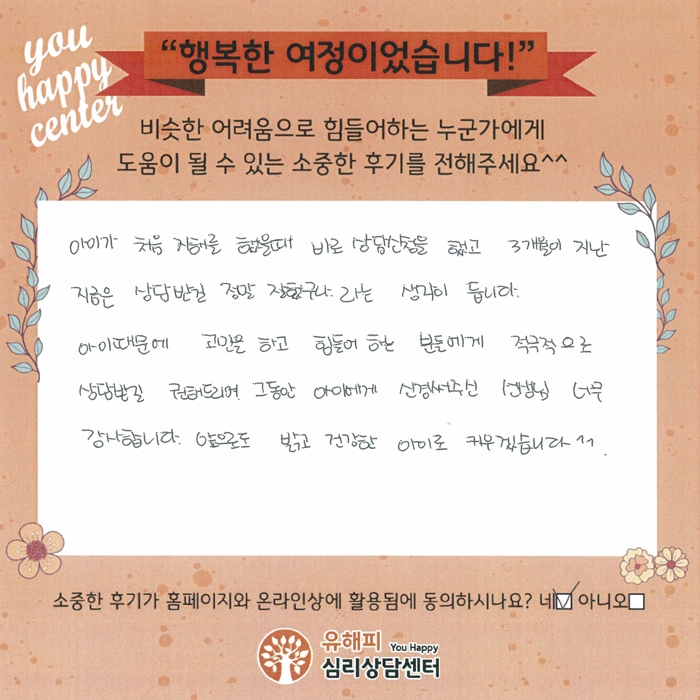 you
happy
center
“행복한 여정이었습니다!”
비슷한 어려움으로 힘들어하는 누군가에게
도움이 될 수 있는 소중한 후기를 전해주세요^^
아이가 처음 자해를 했을때 바로 상담신청을 했고 3개월이 지난
지금은 상담받길 정말 잘했구나 라는 생각이 듭니다.
아이때문에 고민을 하고 힘들어 하는 분들에게 적극적으로
상담받길 권해드리며 그동안 아이에게 신경써주신 선생님 너무
감사합니다. 앞으로도 밝고 건강한 아이로 키우겠습니다^^.
소중한 후기가 홈페이지와 온라인상에 활용됨에 동의하시나요? 네☑ 아니오☐
유해피 You Happy
심리상담센터